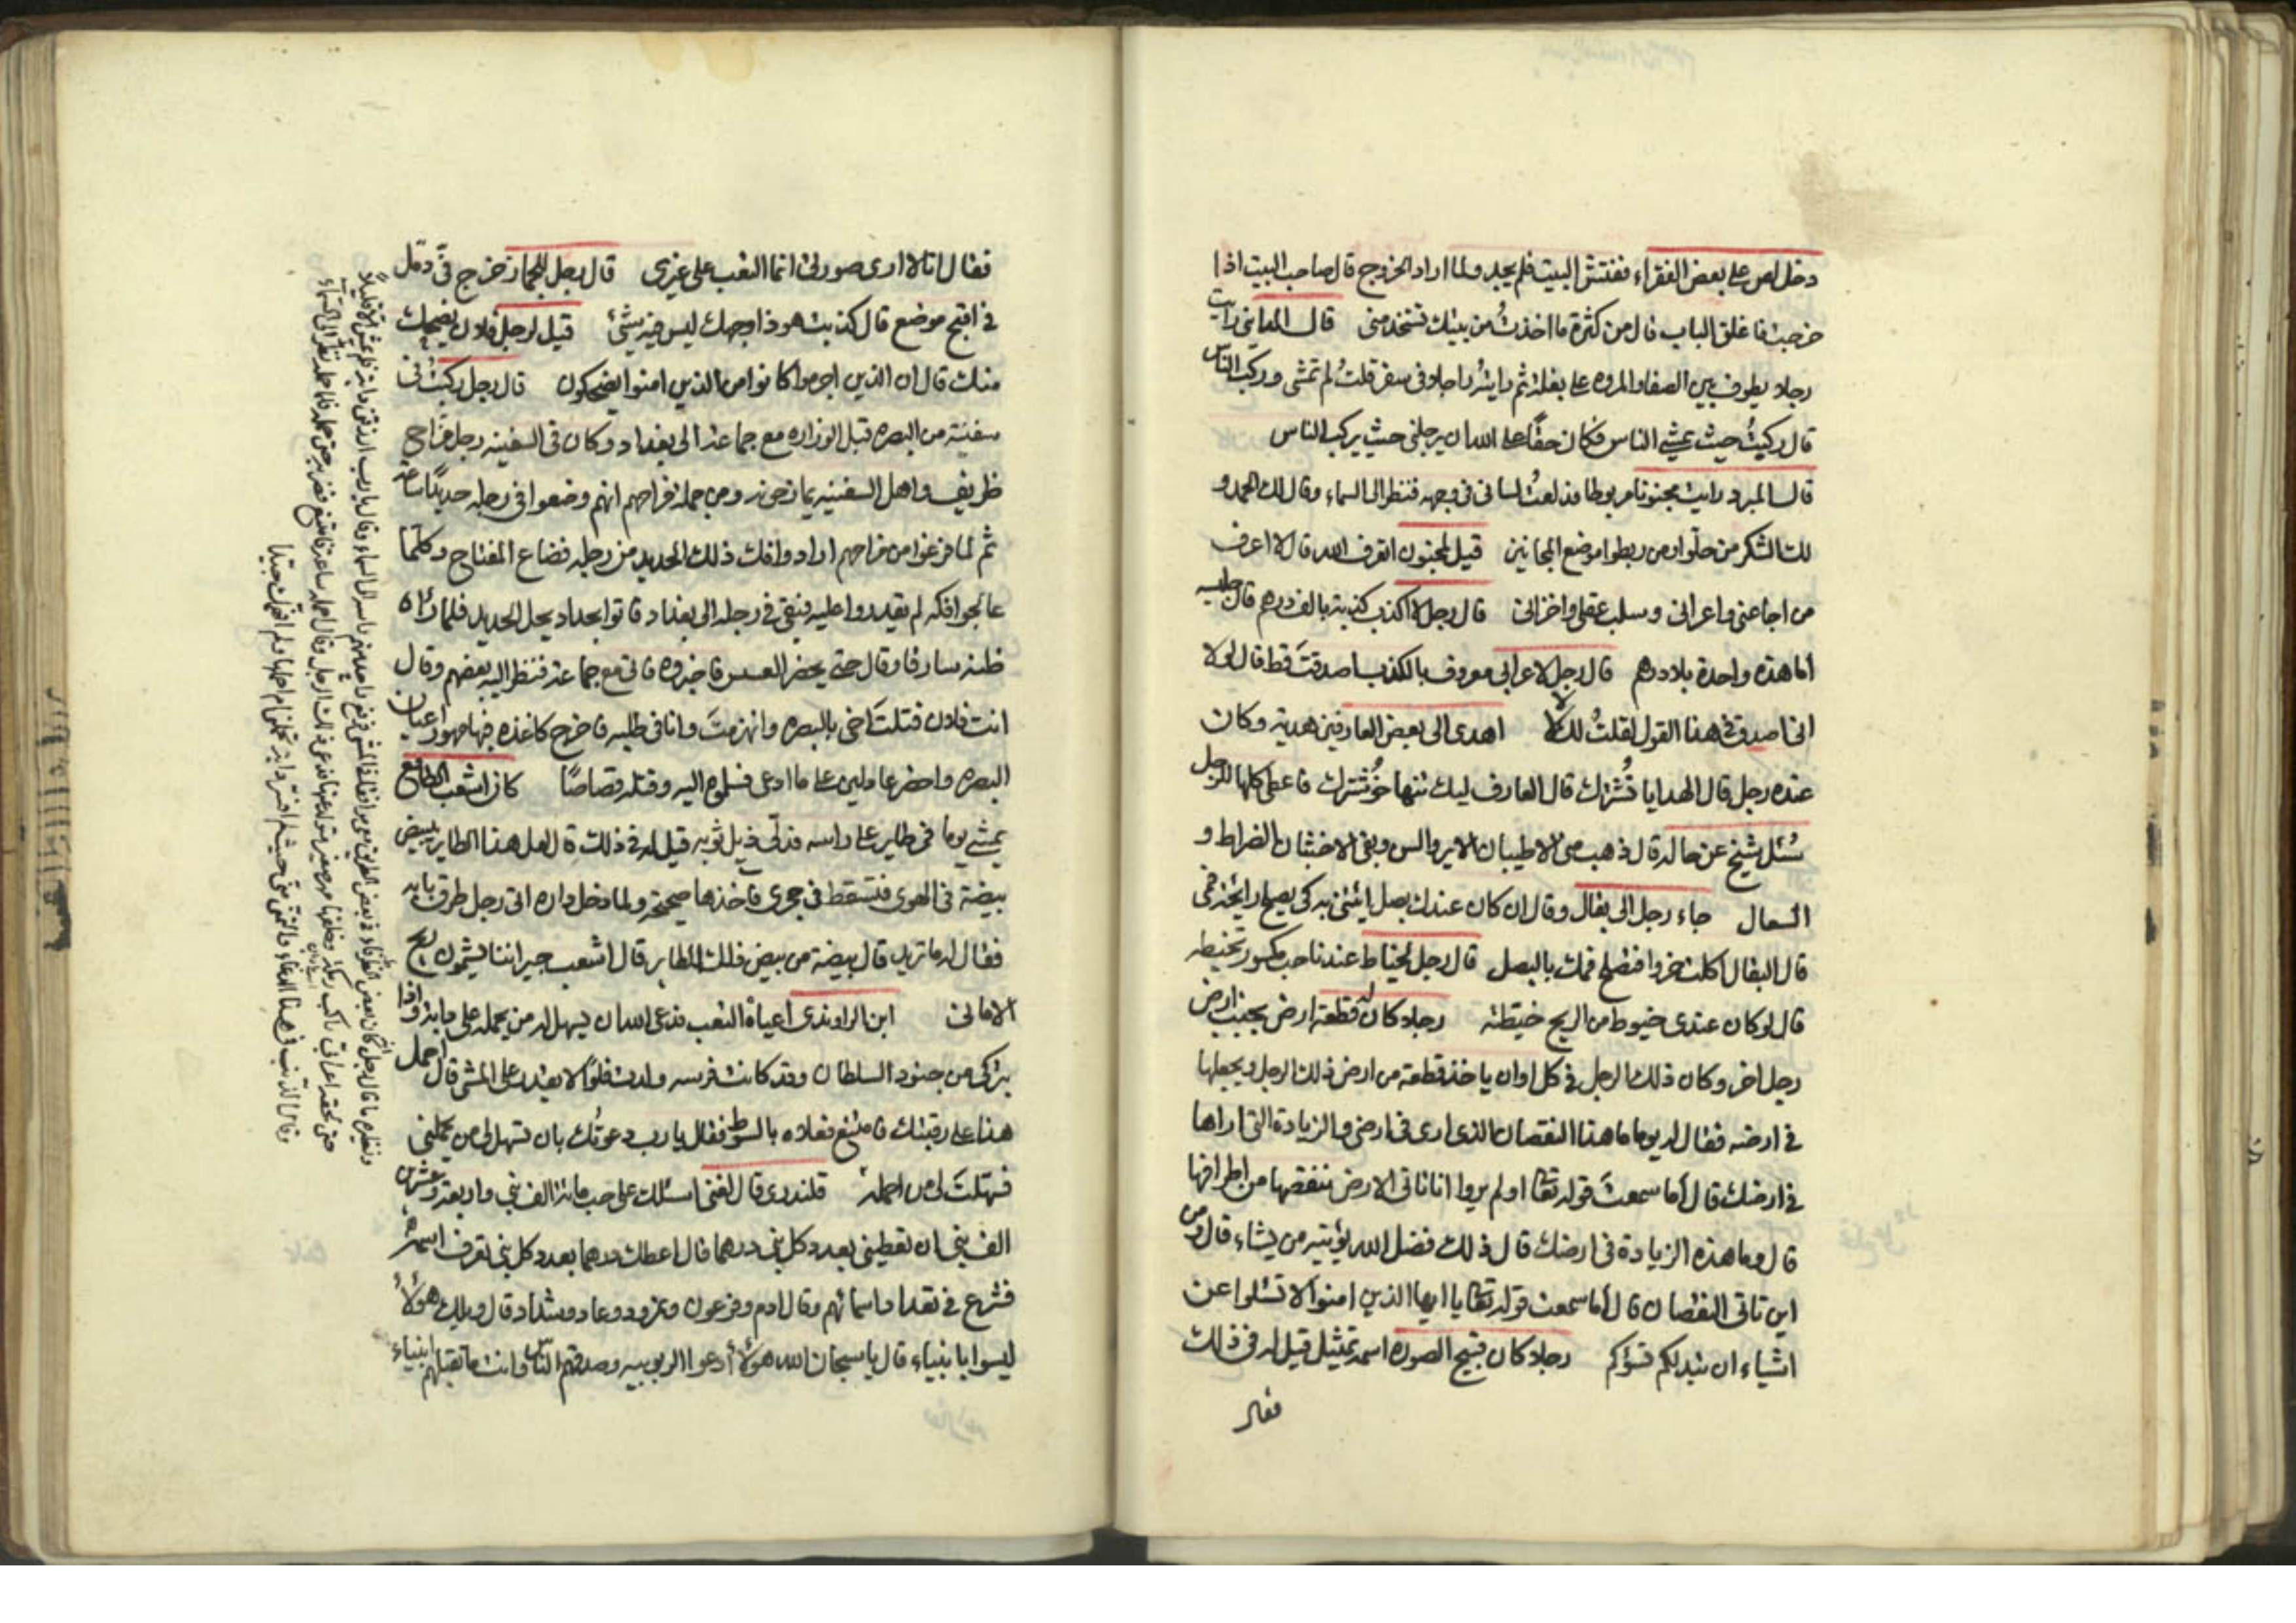 دخل لص على بعض الفقراء ففتش البيت فلم يجد ولما اراد الخروج قال صاحب البيت اذا
خرجت فاغلق الباب قال من كثرة ما اخذتُ من بيتك تستخدمنى قال المداينى رايت
رجلا يطوف بين الصفا والمروه على بغلة ثم رايتُه راجلا فى سفر قلتُ لم تمشى وركب الناس
قال ركبتُ حيث يمشي الناس فكان حقًا على الله ان يرجلنى حيث يركب الناس
قال المبرد رايت مجنونا مربوطا فدلعتُ لسانى فى وجهه فنظر الى السماء وقال لك الحمد و
لك الشكر من حلّوا ومن ربطوا موضع المجانين قيل لمجنون اتعرف الله قال لا اعرف
من اجاعنى واعرانى وسلب عقلى واخزانى قال رجل لا اكذب كذبة بالف درهم قال جليسه
اما هذه واحدة بلا درهم قال رجل لاعرابى معروف بالكذب اصدقتَ قط قال لولا
انى اصدق فى هذا القول لقلتُ لك لا اهدى الى بعض العارفين هدية وكان
عنده رجل قال الهدايا تُشترك قال العارف ليك تنها خُوشترك فاعطى كلها للرجل
سُئل شيخ عن حاله قال ذهب منى الاطيبان الاير والس وبقى الاخبثان الضراط و
السعال جاء رجل الى بقال وقال ان كان عندك بصل ايتنى به كى يصلح رايحة فمى
قال البقال اكلت خروا فتصلح فمك بالبصل قال رجل لخياط عندنا حب مكسور تخيطه
قال لو كان عندى خيوط من الريح خيطته رجلا كان له قطعة ارض بجنب ارض
رجل اخر وكان ذلك الرجل فى كل اوان ياخذ قطعة من ارض ذلك الرجل ويجعلها
فى ارضه فقال له يوما ما هذا النقصان الذى ارى فى ارضى والزيادة التى اراها
فى ارضك قال أما سمعتَ قوله تعا اولم يروا انا ناتى الارض ننقصها من اطرافها
قال وما هذه الزيادة فى ارضك قال ذلك فضل الله يؤتيه من يشاء قال ومن
اين تاتى النقصان قال أما سمعت قوله تعا يا ايها الذين امنوا لا تسئلوا عن
اشياء ان تبد لكم تسؤكم رجلا كان قبيح الصوره اسمه تمثيل قيل له فى ذلك
فقال
فقال انا لا ارى صورتى انما التعب على غيرى قال رجل للجماز خرج فىّ دمّل
فى اقبح موضع قال كذبت هوذا وجهك ليس فيه شئ قيل لرجل فلان يضحك
منك قال ان الذين اجرموا كانوا من الذين امنوا يضحكون قال رجل ركبتُ فى
سفينة من البصره قبل الوزاره مع جماعة الى بغداد وكان فى السفينه رجل مزّاح
ظريف واهل السفينه يمازحونه ومن جملة مزاحهم انهم وضعوا فى رجله حديدًا ساعة
ثم لما فرغوا من مزاحهم ارادوا فك ذلك الحديد من رجله فضاع المفتاح وكلما
عالجوا فكه لم يقدروا عليه فبقى فى رجله الى بغداد فاتوا بحداد يحل الحديد فلما رآه
ظنه سارقا وقال حتى يحضر العسس فاخبروه فاتى مع جماعة فنظر اليه بعضهم وقال
انت فلان قتلتَ اخى بالبصره وانهزمتَ وانا فى طلبه فاخرج كاغذه فيها مهور اعيان
البصره واحضر عادلين على ما ادعى فسلموه اليه وقتله قصاصًا كان اشعب الطامع
يمشى يوما فى طاير على راسه فدلّى ذيل ثوبه قيل له فى ذلك قال لعل هذا الطاير يبيض
بيضة فى الهوى فتسقط فى حجرى فآخذها صحيحة ولما دخل داره اتى رجل طرق بابه
فقال له ما تريد قال بيضة من بيض ذلك الطاير قال اشعب جيراننا يشمون ريح
الامانى ابن الراوندى اعياه التعب فدعى الله ان يسهل له من يحمله على دابة واذا
بتركى من جنود السلطان وقد كانت فرسه ولدت فلوًا لا يقدر على المشى قال احمل
هذا على رقبتك فامتنع فعلاه بالسوط فقال يا رب دعوتُك بان تسهل لى من يحملنى
فسهّلتَ لى من احمله قلندرى قال لغنى اسئلك على حب ماية الف نبى واربعة وعشرين
الف نبى ان تعطينى بعدد كل نبى درهما قال اعطك درهما بعدد كل نبى تعرف اسمه
فشرع فى تعداد اسمائهم وقال ادم وفرعون ونمرود وعاد وشداد قال ويلك هؤلاء
ليسوا بانبياء قال يا سبحان الله هؤلاء أدعوا الربوبيه وصدقهم الناس وانت ما تقبلهم انبياء